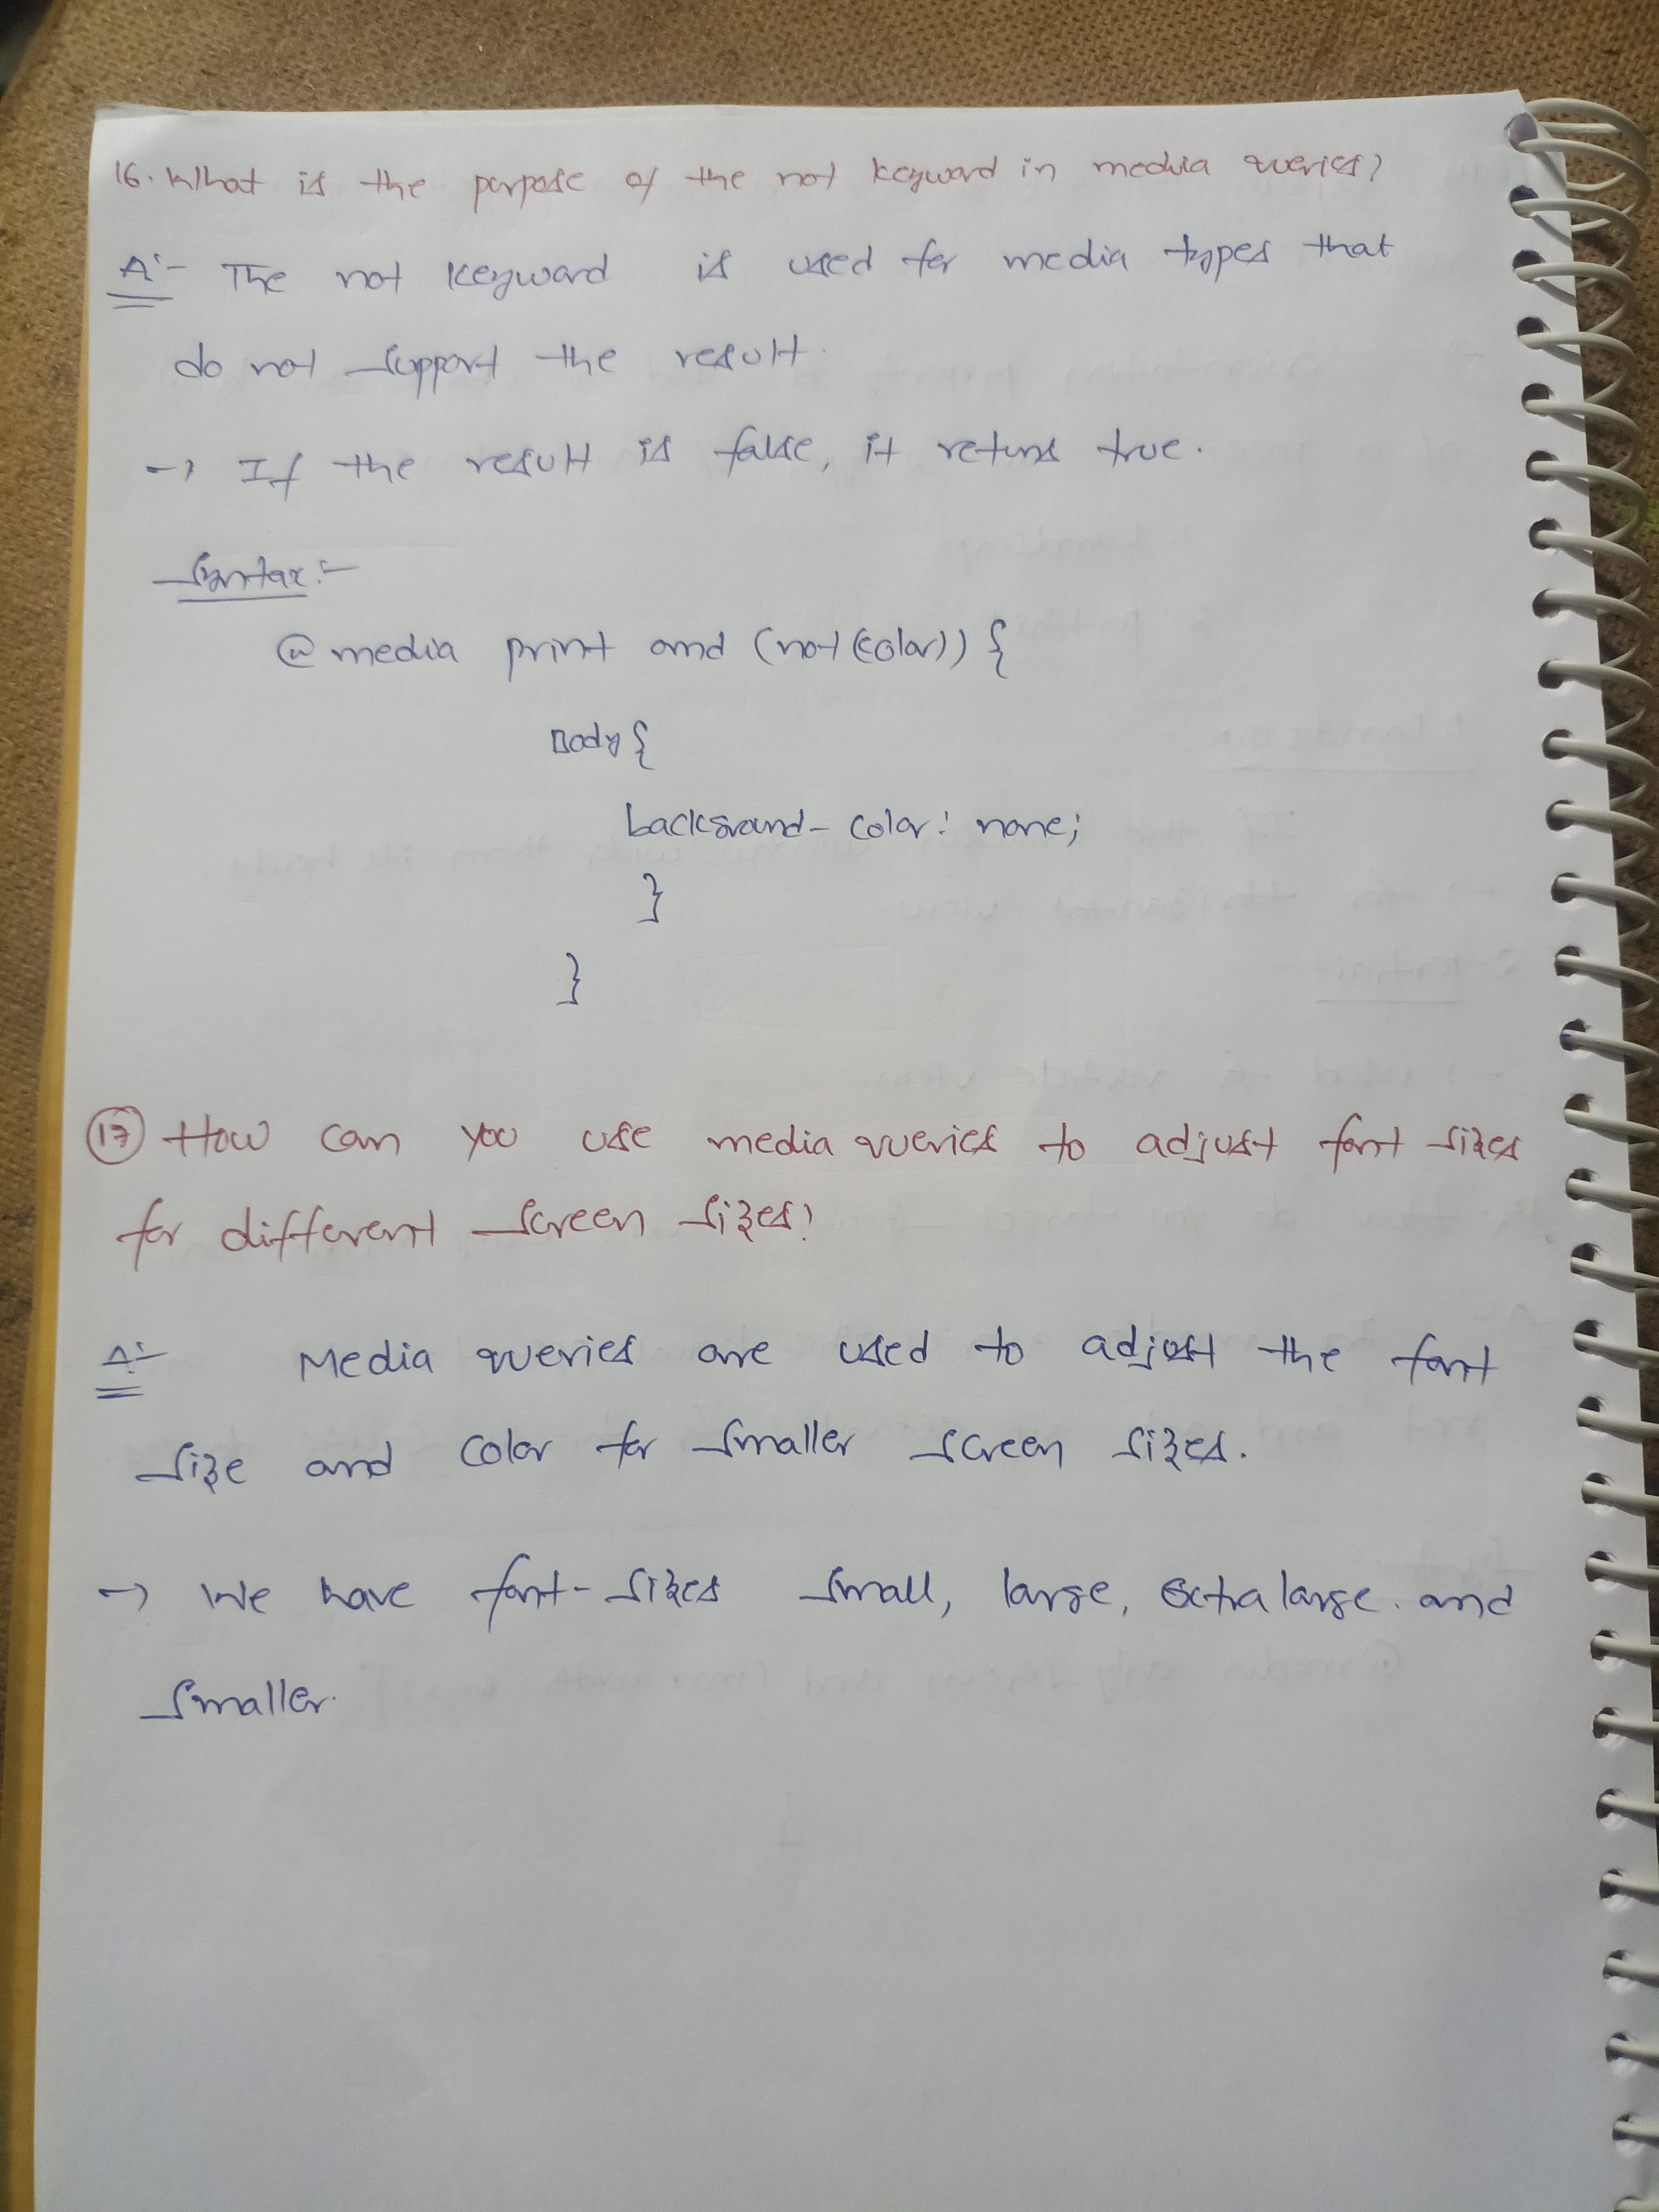 16. What is the purpose of the not keyword in media queries?
A:- The not keyword is used for media types that
do not support the result.
→ If the result is false, it returns true.
Syntax:-
@media print and (not(color)) {
Body {
background-color: none;
}
}
17 How can you use media queries to adjust font sizes
for different screen sizes?
A:- Media queries are used to adjust the font
size and color for smaller screen sizes.
→ We have font-sizes small, large, extra large. and
smaller.